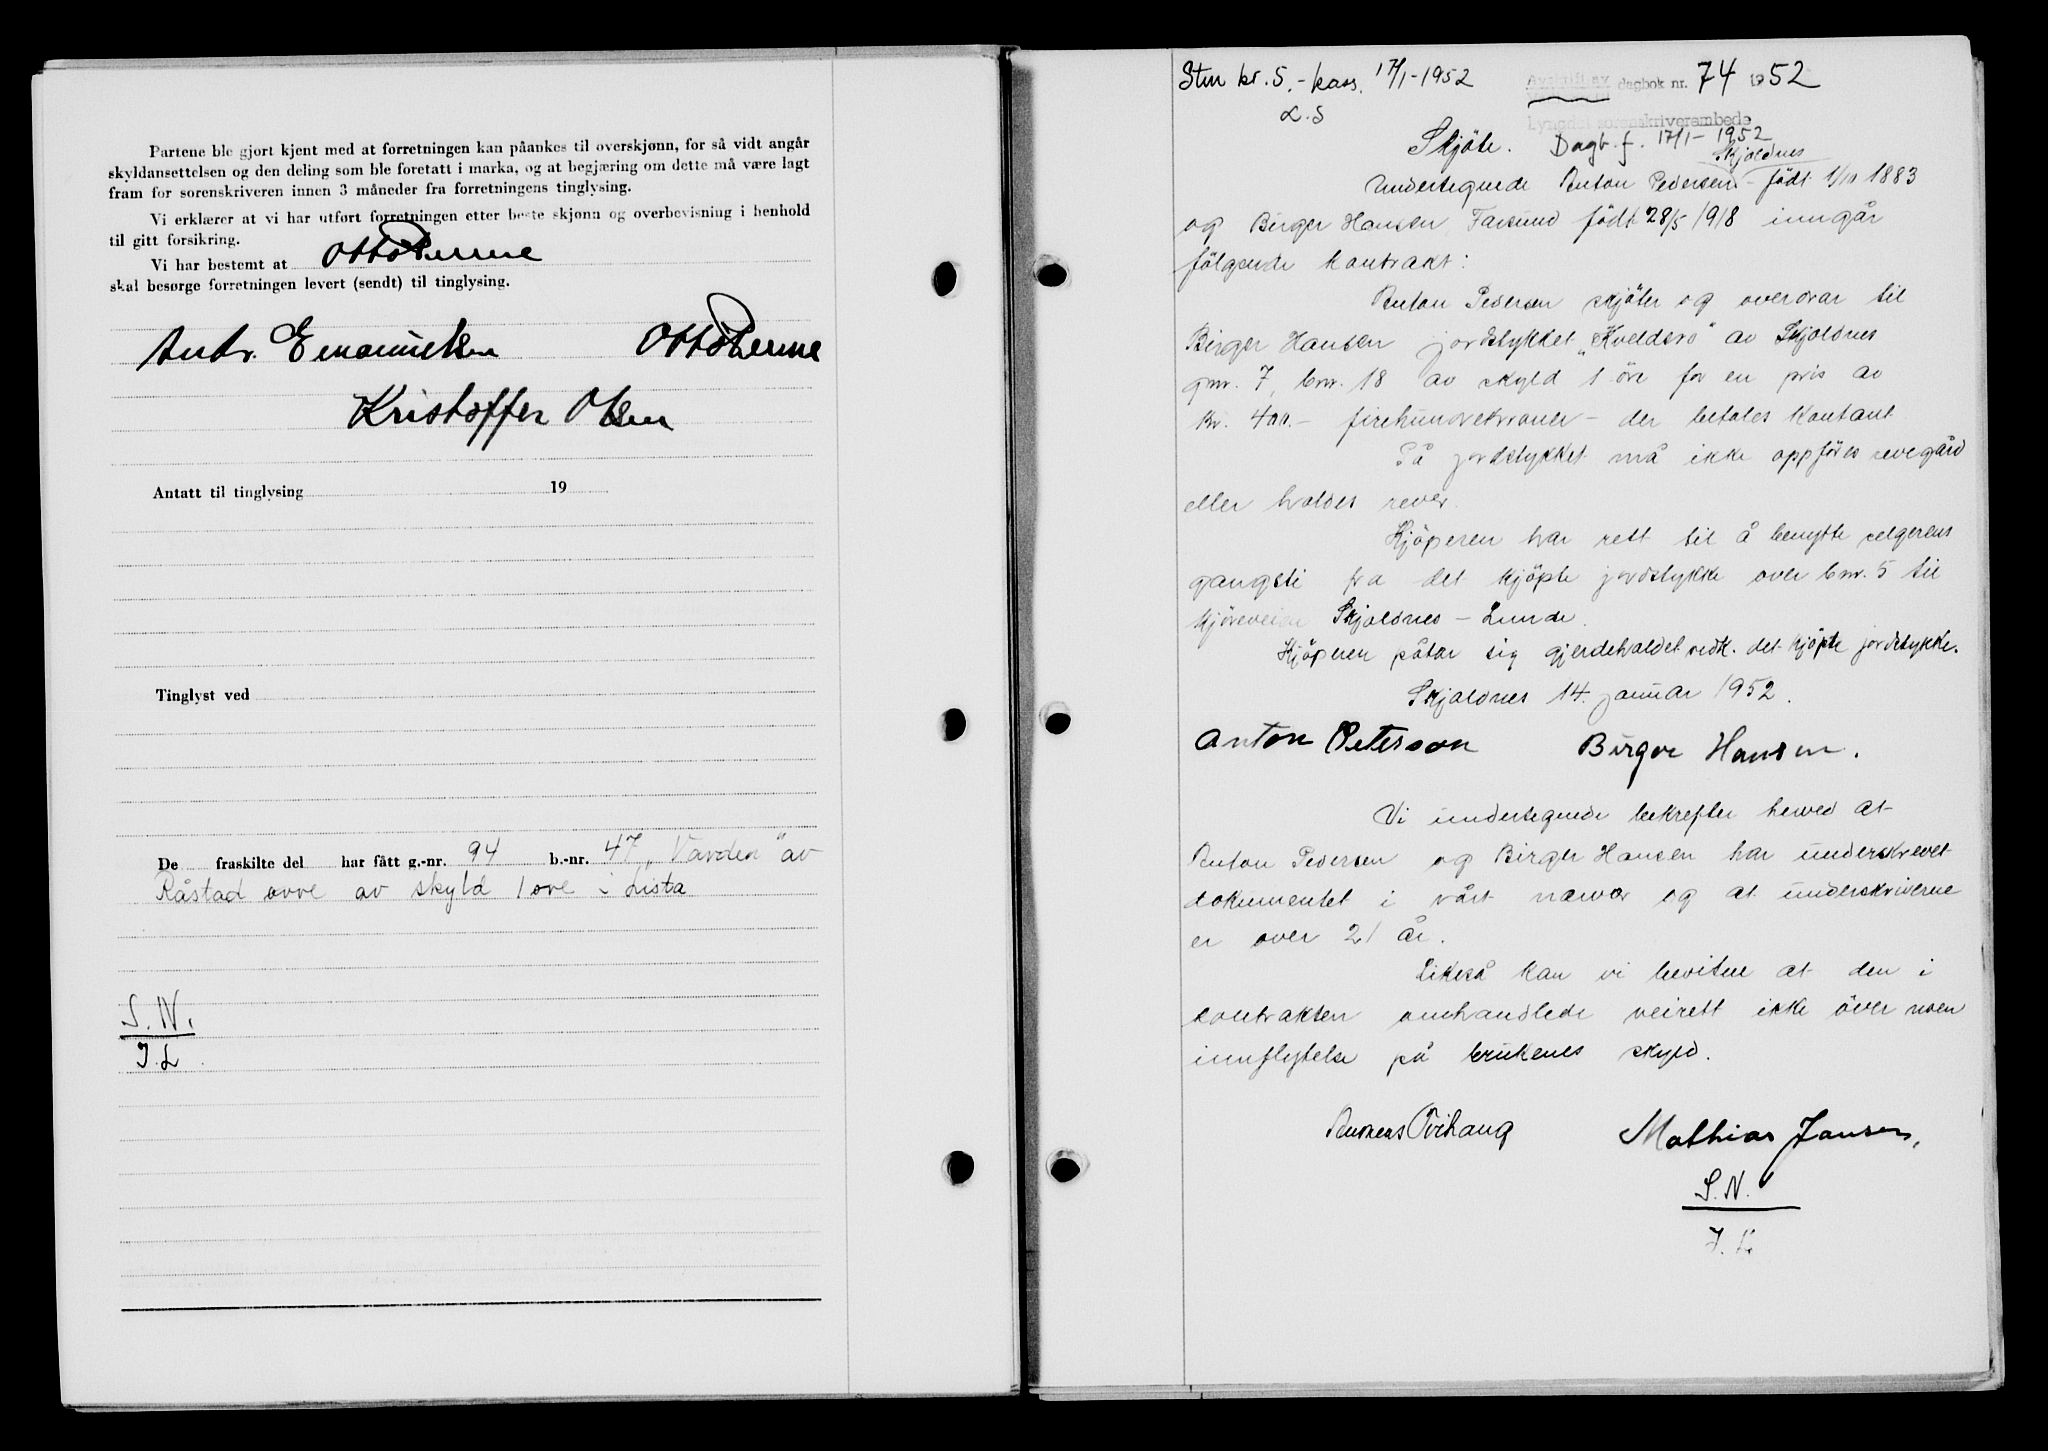 Partene ble gjort kjent med at forretningen kan påankes til overskjønn, for så vidt angår
skyldansettelsen og den deling som ble foretatt i marka, og at begjæring om dette må være lagt
fram for sorenskriveren innen 3 måneder fra forretningens tinglysing.
Vi erklærer at vi har utført forretningen etter beste skjønn og overbevisning i henhold
til gitt forsikring.
Vi har bestemt at Otto
skal besørge forretningen levert (sendt) til tinglysing.
Andr. Emanuelsen Otto
Kristoffer Olsen
Antatt til tinglysing 19
Tinglyst ved
De fraskilte del har fått g.-nr. 94 b.-nr. 47 „Varden" av
Råstad øvre av skyld 1 øre i Lista
S.N.
J.L.
Stm kr. 5.- kass. 17/1-1952
L.S
Avskift av dagbok nr. 74 1952
Lyngdal sorenskriverembede
Skjöte. Dagb.f. 17/1-1952
Skjoldnes
Undertegnede Anton Pedersen - født 1/10 1883
og Birger Hansen, Farsund født 28/5 1918 inngår
følgende kontrakt:
Anton Pedersen skjøter og overdrar til
Birger Hansen jordstykket „Kveldsro" av Skjoldnes
gnr. 7, bnr. 18 av skyld 1 öre for en pris av
kr. 400.- firehundrekroner - der betales kontant
På jordstykket må ikke oppföres revegård
eller holdes rever.
Kjöperen har rett til å benytte selgerens
gangsti fra det kjöpte jordstykke over bnr. 5 til
kjöreveien Skjoldnes - Lunde.
Kjöperen påtar sig gjerdeholdet vedk. det kjöpte jordstykke.
Skjoldnes 14. januar 1952.
Anton Peterson Birger Hansen.
Vi undertegnede bekrefter herved at
Anton Pedersen og Birger Hansen har underskrevet
dokumentet i vårt nærvær og at underskriverne
er over 21 år.
Likeså kan vi bevitne at den i
kontrakten omhandlede veirett ikke över noen
innflytelse på brukenes skyld.
Mathias Jansen,
S.N.
J.L.